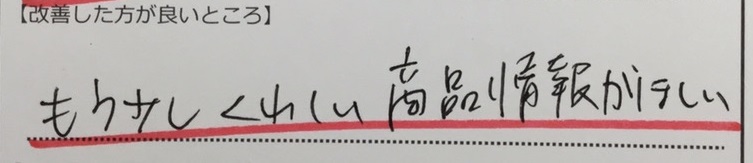 【改善した方が良いところ】
もう少しくわしい商品情報がほしい